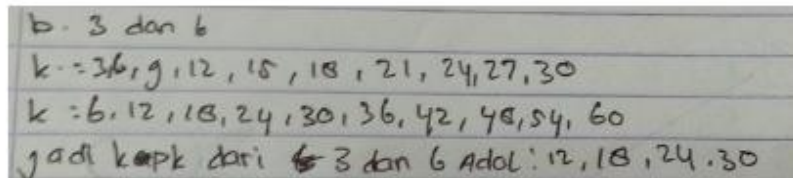 b. 3 dan 6
k. = 3,6, 9, 12, 15, 18, 21, 24, 27, 30
k : 6, 12, 18, 24, 30, 36, 42, 48, 54, 60
jadi kapk dari 3 dan 6 Adal : 12, 18, 24. 30